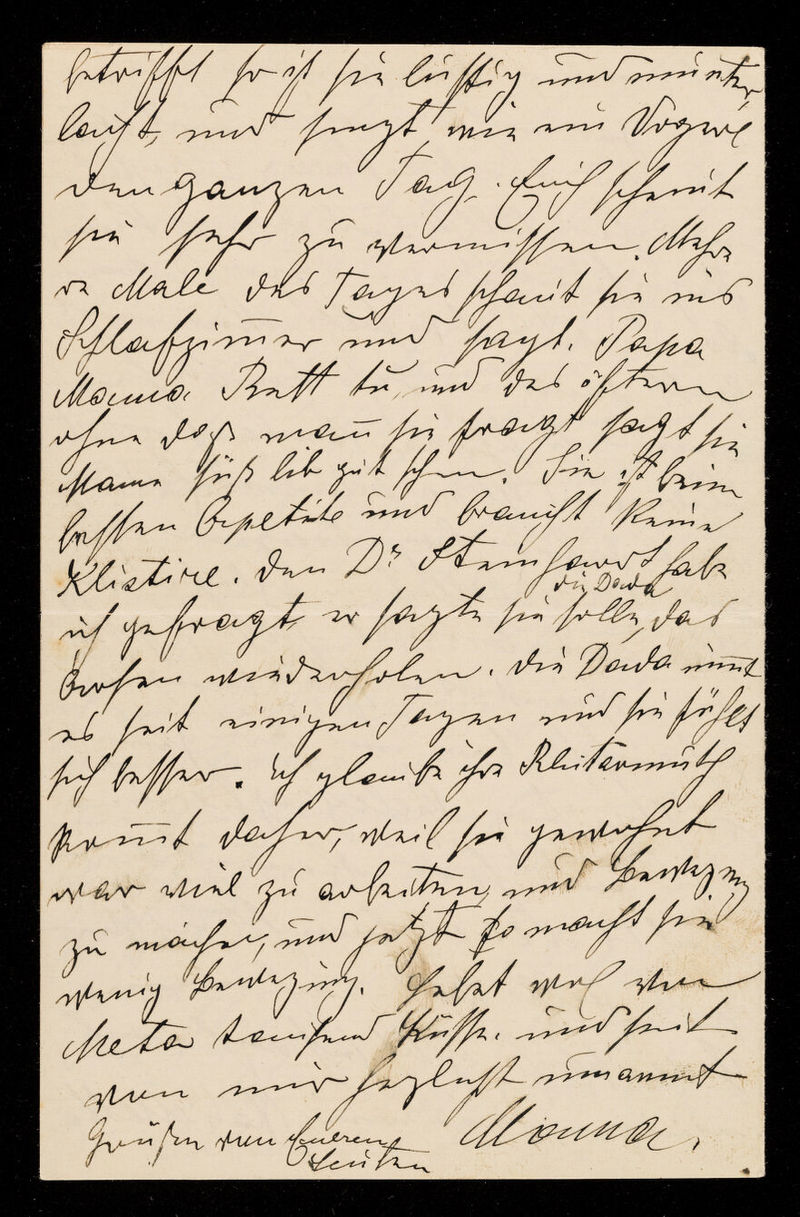 betrifft so ist sie lustig und munter,
lacht, und singt, wie ein Vogerl
den ganzen Tag. Euch scheint
sie sehr zu vermissen. Mehre
re Male des Tages schaut sie ins
Schlafzimmer und sagt. Papa
Mama Bett tu, und des öftern
ohne daß man sie fragt sagt sie
Mama süß lib gut schen. Sie ist beim
besten Apetite und braucht keine
Klistire. Den Dr Steinhardt habe
ich gefragt, er sagte sie solle, die Dada das
Arsen wiederholen. Die Dada nimmt
es seit einigen Tagen und sie fühlt
sich besser. Ich glaube ihre Blutarmuth
kommt daher, weil sie gewohnt
war viel zu arbeiten, und Bewegung
zu machen, und jetzt so macht sie
wenig Bewegung. Lebet wol von
Meta tausend Küsse. und seit
von mir herzlichst umarmt
Mama.
Grüße von Eueren
Leuten